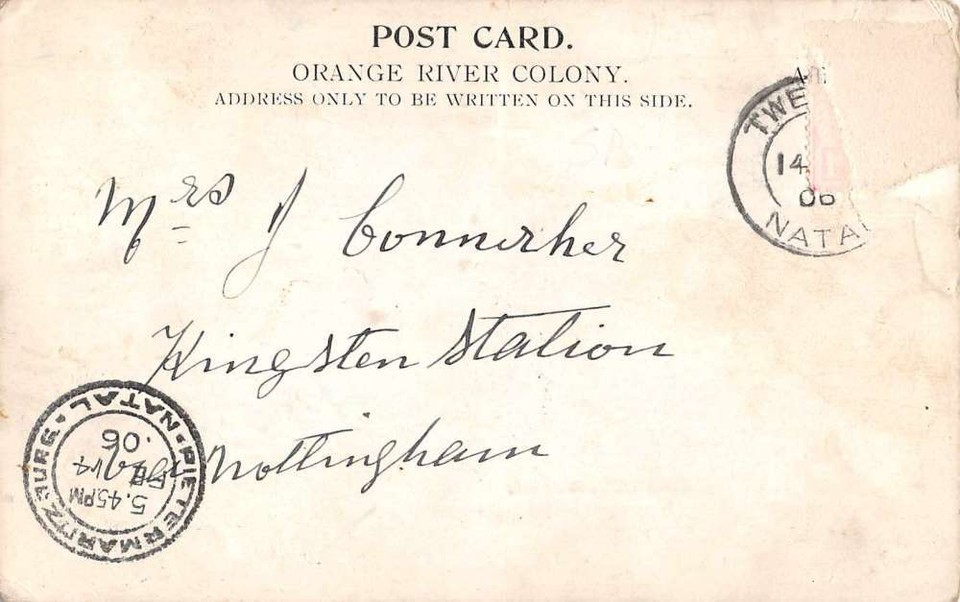 POST CARD.
ORANGE RIVER COLONY.
ADDRESS ONLY TO BE WRITTEN ON THIS SIDE.
TWE
14
06
NATA
Mrs J
Kingsten Station
Nottingham
PIETERMARITZBURG • NATAL •
5.45PM
06